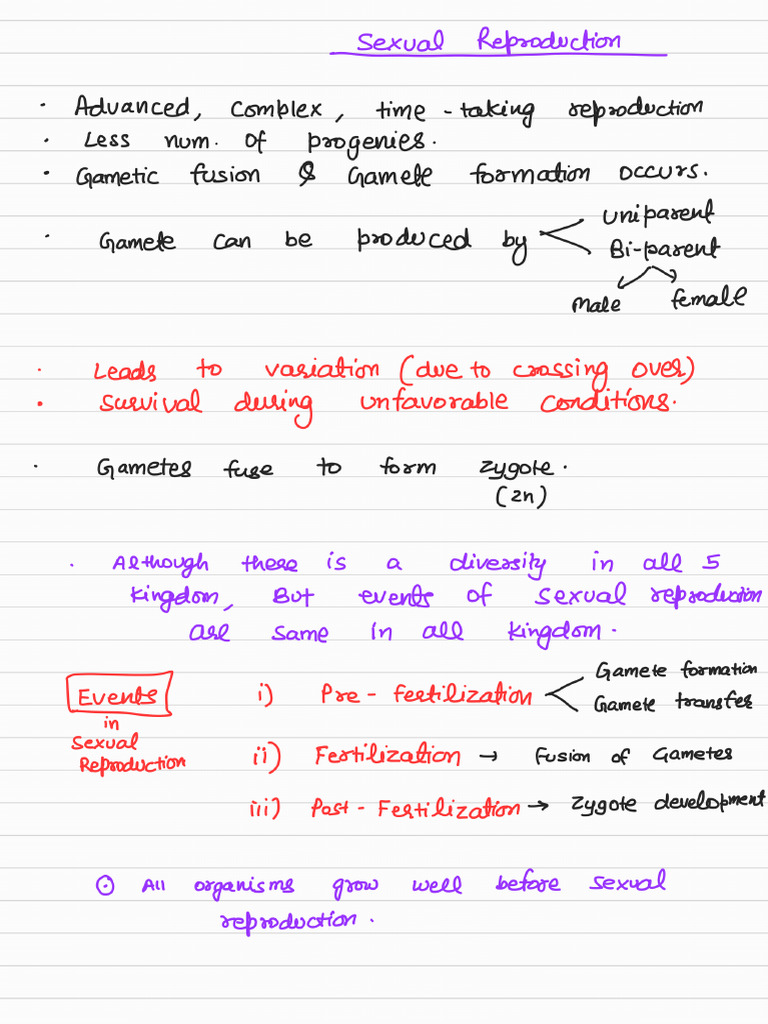 Sexual Reproduction
· Advanced, complex, time-taking reproduction
· Less num. of progenies.
· Gametic fusion & Gamete formation occurs.
· Gamete can be produced by
uniparent
Bi-parent
male female
· Leads to variation (due to crossing over)
· Survival during unfavorable conditions.
· Gametes fuse to form zygote.
(2n)
· Although there is a diversity in all 5
kingdom, But events of sexual reproduction
are same in all kingdom.
Events
in
Sexual
Reproduction
i) Pre-fertilization
Gamete formation
Gamete transfer
ii) Fertilization → Fusion of Gametes
iii) Post-Fertilization → Zygote development
⊙ All organisms grow well before sexual
reproduction.